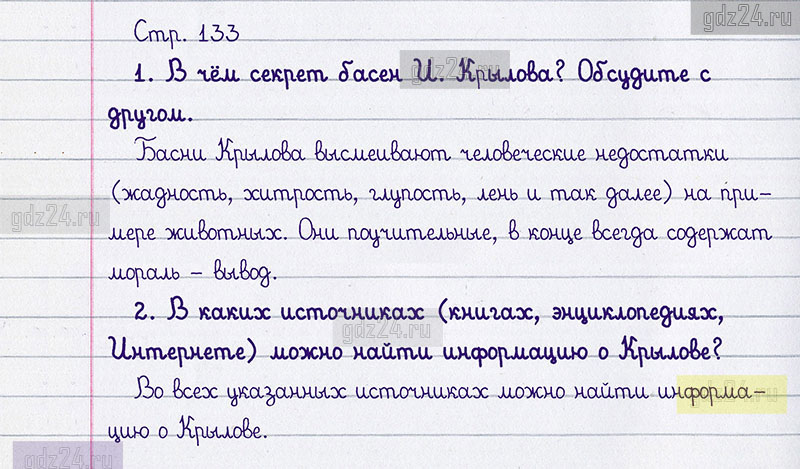 gdz24.ru
Стр. 133
1. В чём секрет басен И. Крылова? Обсудите с
другом.
Басни Крылова высмеивают человеческие недостатки
(жадность, хитрость, глупость, лень и так далее) на при-
gdz24.ru
мере животных. Они поучительные, в конце всегда содержат
мораль – вывод.
2. В каких источниках (книгах, энциклопедиях,
gdz24.ru
Интернете) можно найти информацию о Крылове?
Во всех указанных источниках можно найти информа-
цию о Крылове.
gdz24.ru